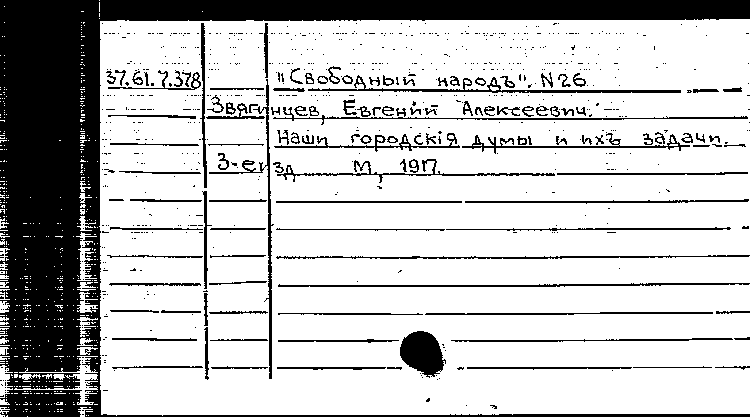 37.61.7.378 "Свободный народъ". N 26
Звягинцев, Евгений Алексеевич.
Наши городскія думы и ихъ задачи.
3-е изд М., 1917.